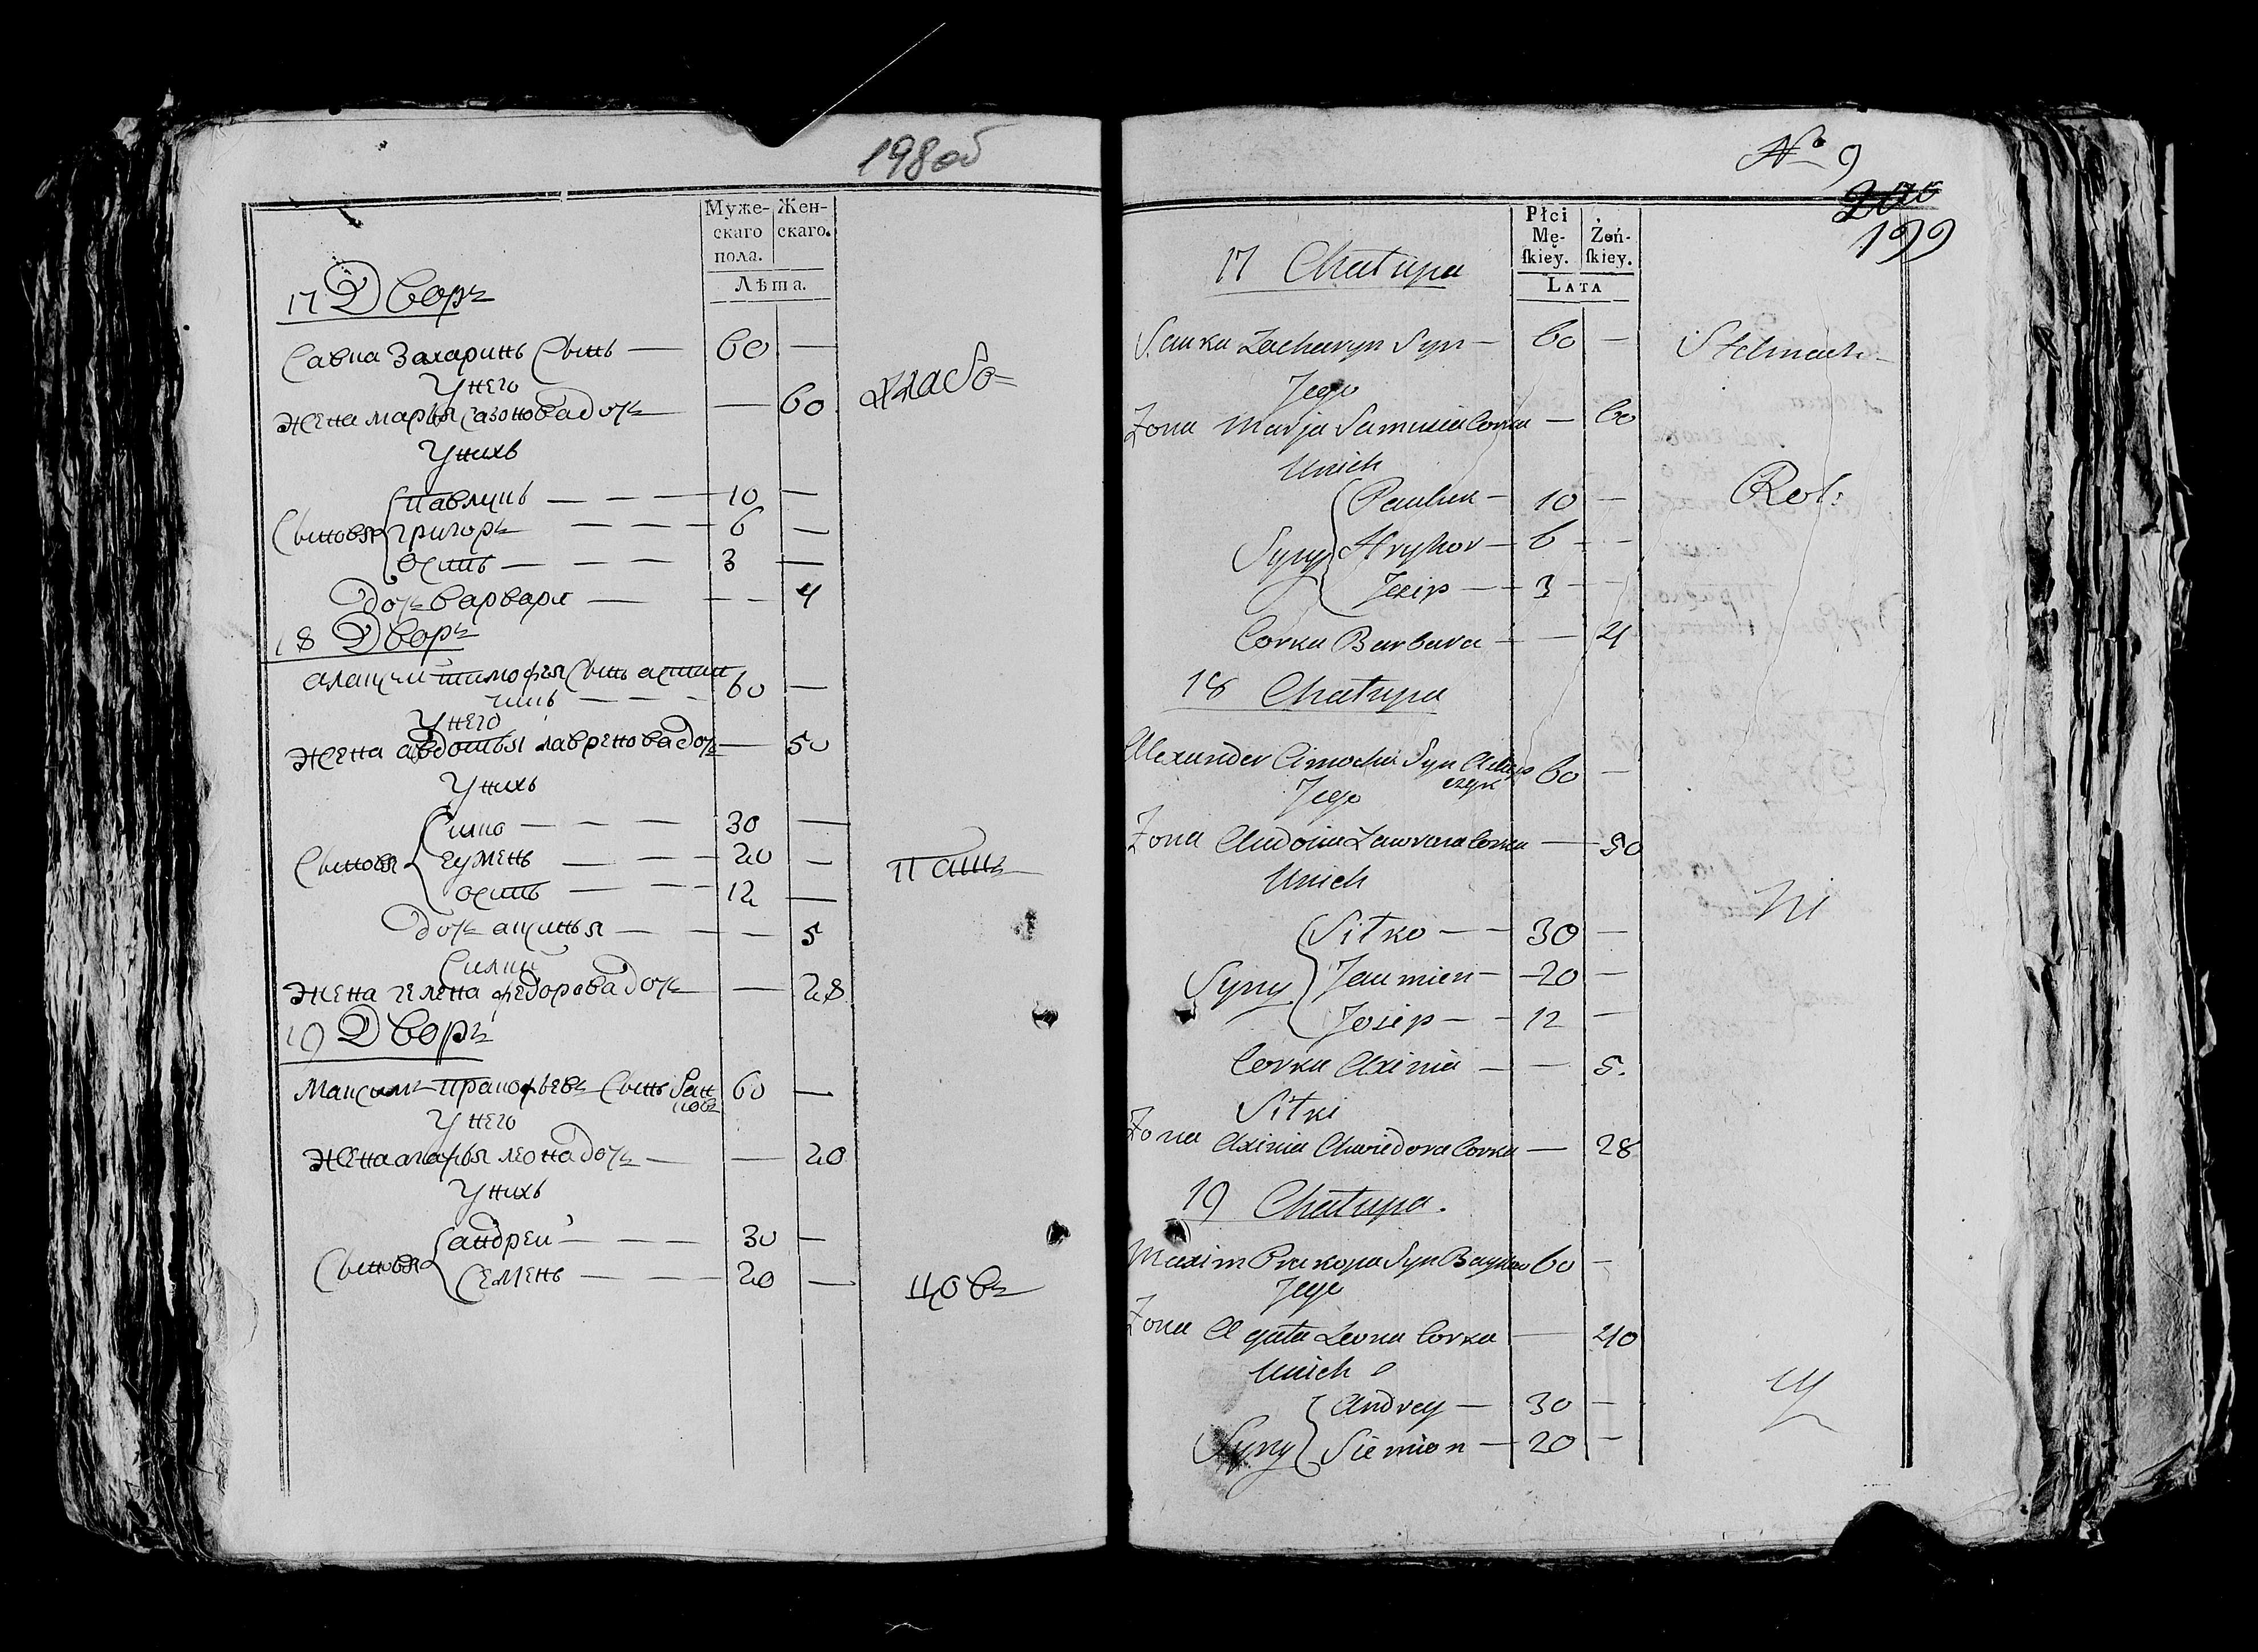 198об
Муже- Жен-
скаго скаго.
пола.
Лѣта.
17 Дворъ
Савка Захаринъ Сынъ — 60 —
У него
жена марья сазонова дочь — — 60
хлебо=
У нихъ
Сыновья павлукъ — — — 10 —
григоръ — — — 6 —
осипъ — — — 3 —
дочь варвара — — — 4
18 Дворъ
тимофея Сынъ
60 —
У него
жена авдотья лавренова дочь — 50
У нихъ
Сыновья — — — 30 —
— — — 20 —
осипъ — — — 12 —
паш
дочь — — — 5
жена гелена федорова дочь — 28
19 Дворъ
Максимъ Сынъ 60 —
У него
жена леона дочь — — 20
У нихъ
Сыновья андрей — — — 30 —
Семенъ — — — 20 —
цовъ
No 9
199
Płci Żeń-
Mę- skiey.
skiey.
LATA
17 Chałupa
Sauka Zacharyn Syn — 60 — Stelmach
Jego
Zona Marja Samusia Corka — 60
Unich
Syny Pauluk — 10 — Rol:
Hryhor — 6 — —
Jozip — 3 — —
Corka Barbara — — 4
18 Chałupa
Alexander Cimocha Syn
czyk 60 —
Jego
Zona Audocia Lawrona Corka — 50
Unich
ni
Syny Sitko — — 30 —
Jaumien — 20 —
Josip — — 12 —
Corka Axinia — — 5.
Sitki
Zona Axinia Chwiedora Corka — 28
19 Chałupa.
Maxim Prakopa Syn 60 —
Jego
Zona Agata Leona Corka — 40
Unich
Syny Andrey — 30 —
Siemion — 20 —